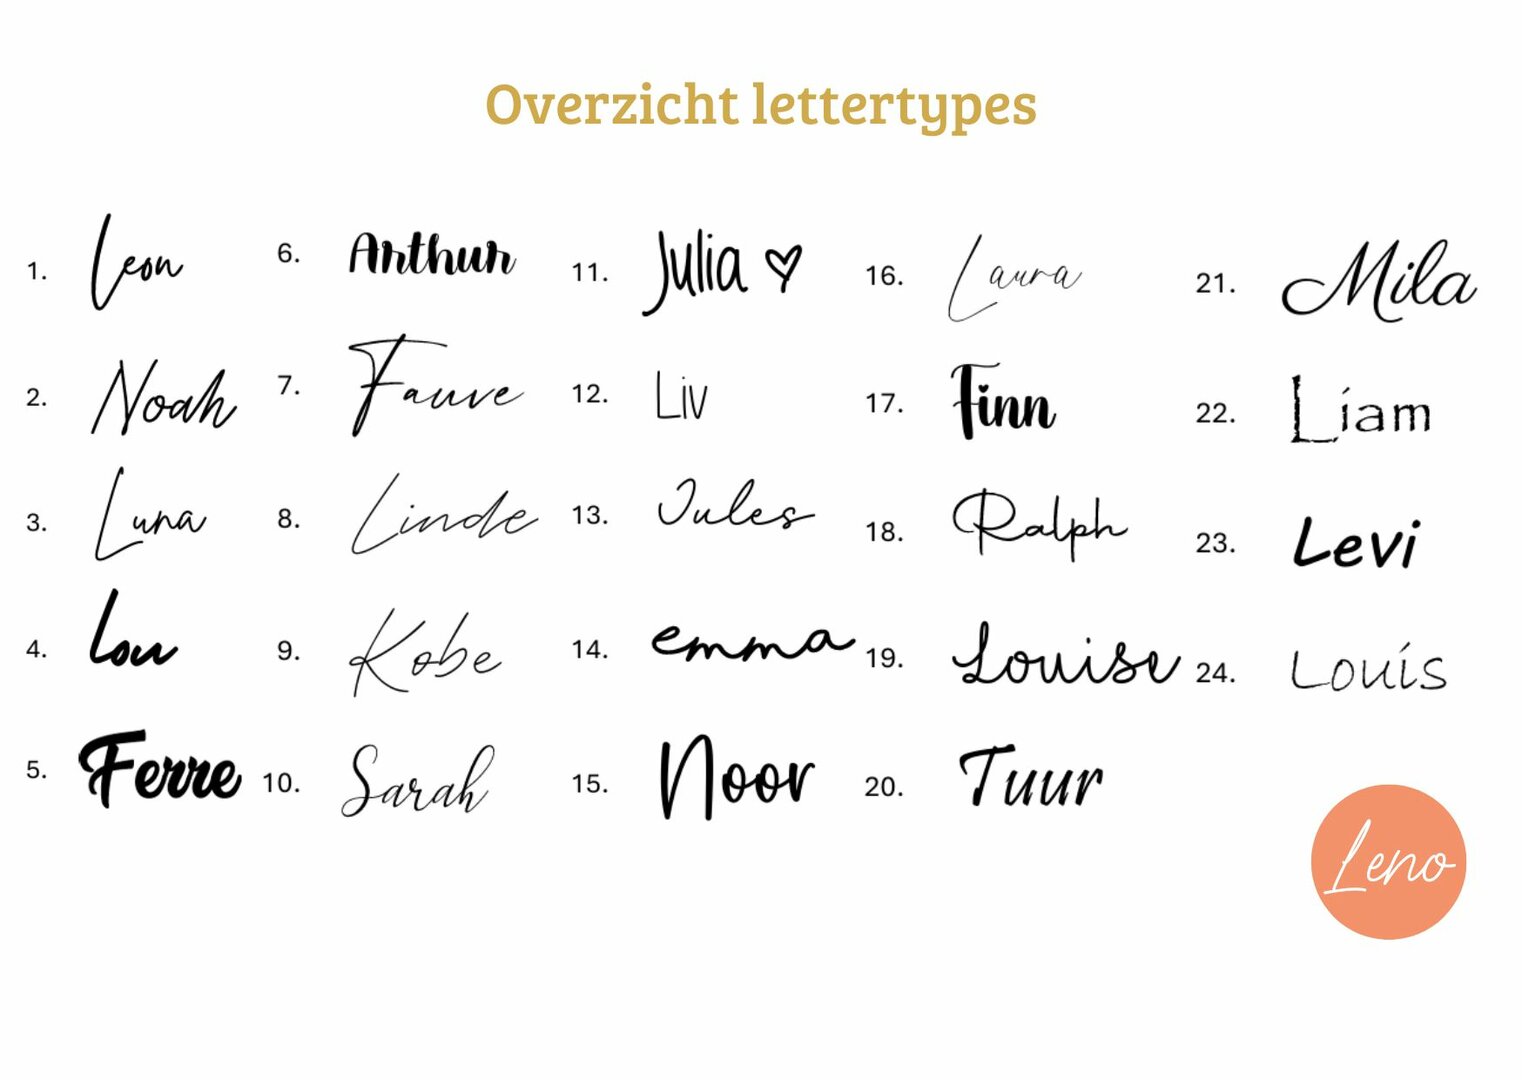 Overzicht lettertypes
1. Leon
2. Noah
3. Luna
4. Lou
5. Ferre
6. Arthur
7. Fauve
8. Linde
9. Kobe
10. Sarah
11. Julia ♡
12. Liv
13. Jules
14. emma
15. Noor
16. Laura
17. Finn
18. Ralph
19. Louise
20. Tuur
21. Mila
22. Liam
23. Levi
24. Louis
Leno